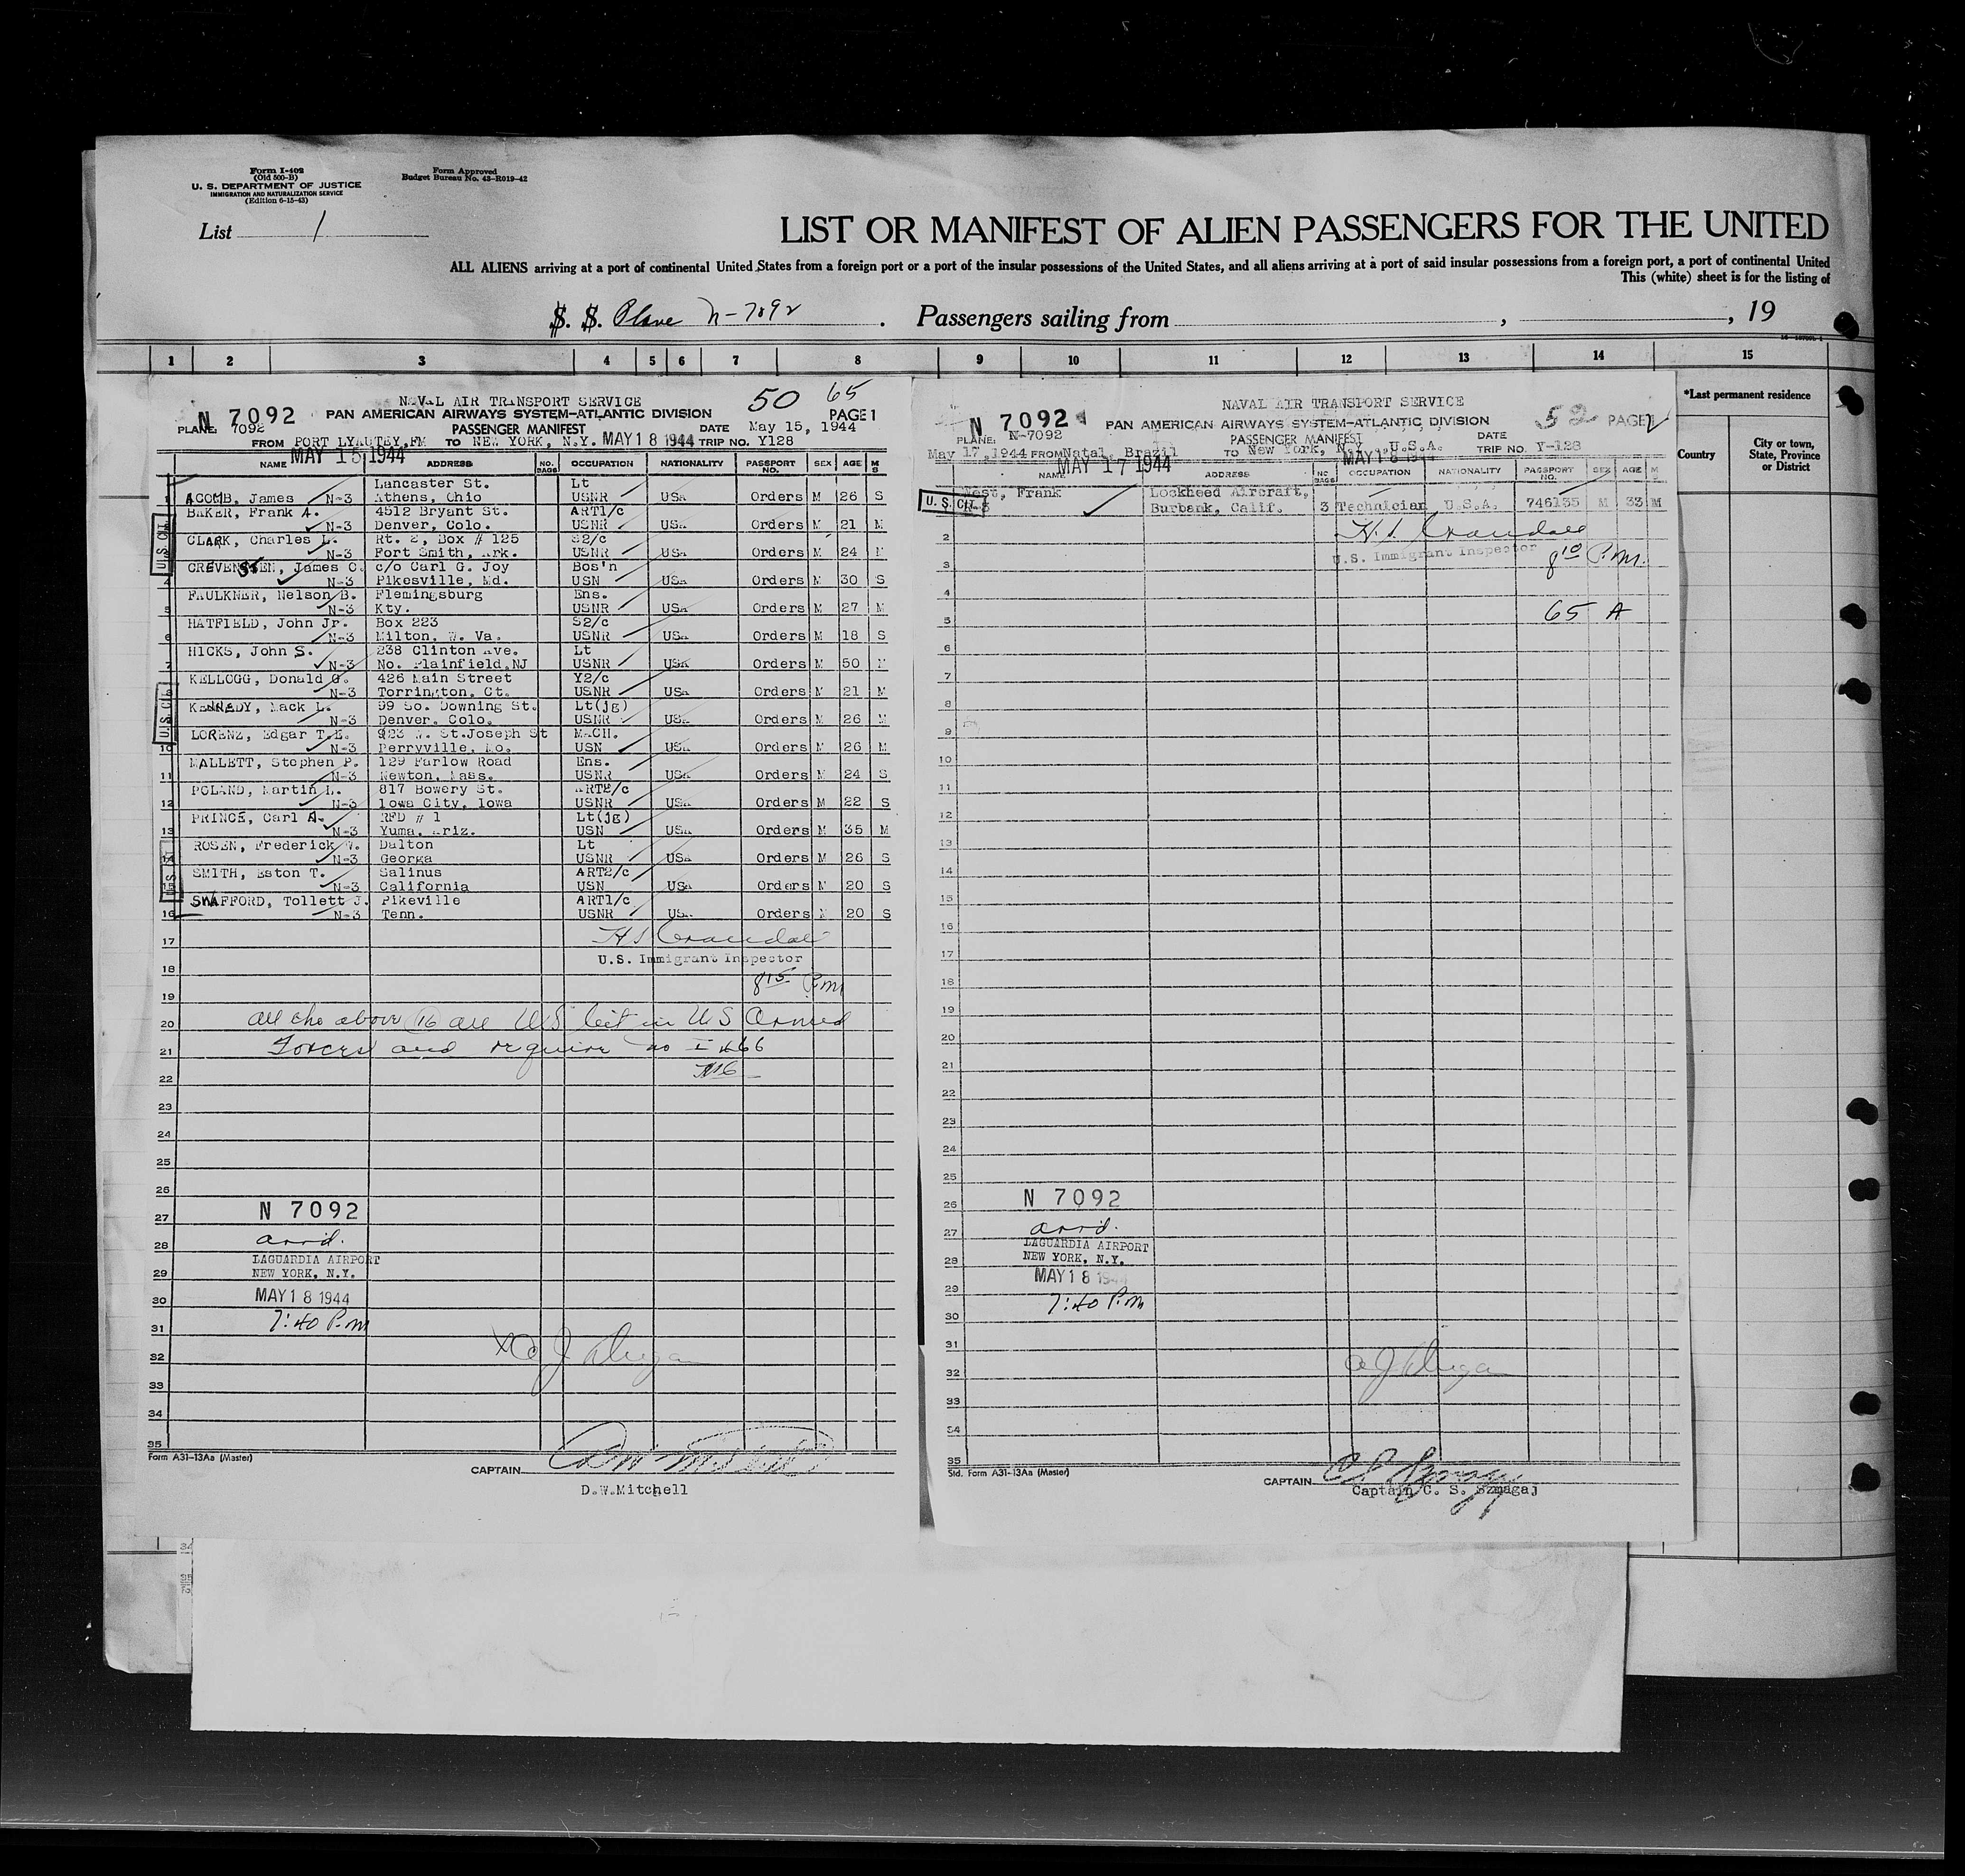 Form I-402
(Old 500-B)
U. S. DEPARTMENT OF JUSTICE
IMMIGRATION AND NATURALIZATION SERVICE
(Edition 6-15-43)
Form Approved
Budget Bureau No. 43-R019-42
List 1
LIST OR MANIFEST OF ALIEN PASSENGERS FOR THE UNITED
ALL ALIENS arriving at a port of continental United States from a foreign port or a port of the insular possessions of the United States, and all aliens arriving at a port of said insular possessions from a foreign port, a port of continental United
This (white) sheet is for the listing of
S. S. Plane N-7092 . Passengers sailing from , , 19
1 2 3 4 5 6 7 8 9 10 11 12 13 14 15
*Last permanent residence
Country
City or town, State, Province or District
NAVAL AIR TRANSPORT SERVICE
50 65
N 7092 PAN AMERICAN AIRWAYS SYSTEM-ATLANTIC DIVISION PAGE 1
PLANE: 7092 PASSENGER MANIFEST DATE May 15, 1944
FROM PORT LYAUTEY,FM TO NEW YORK, N.Y. MAY 18 1944 TRIP NO. Y128
MAY 15 1944
NAME ADDRESS NO. BAGS OCCUPATION NATIONALITY PASSPORT NO. SEX AGE M S
Lancaster St. Lt
1 ACOMB, James N-3 Athens, Ohio USNR USA Orders M 26 S
BAKER, Frank A. 4512 Bryant St. ART1/c
N-3 Denver, Colo. USNR USA Orders M 21 M
CLARK, Charles L. Rt. 2, Box # 125 S2/c
N-3 Fort Smith, Ark. USNR USA Orders M 24 M
CREVENSTEN, James C. c/o Carl G. Joy Bos'n
N-3 Pikesville, Md. USN USA Orders M 30 S
FAULKNER, Nelson B. Flemingsburg Ens.
5 N-3 Kty. USNR USA Orders M 27 M
HATFIELD, John Jr. Box 223 S2/c
6 N-3 Milton, W. Va. USNR USA Orders M 18 S
HICKS, John S. 238 Clinton Ave. Lt
7 N-3 No. Plainfield,NJ USNR USA Orders M 50 M
KELLOGG, Donald G. 426 Main Street Y2/c
N-3 Torrington, Ct. USNR USA Orders M 21 M
KENNEDY, Mack L. 99 So. Downing St. Lt(jg)
N-3 Denver, Colo. USNR USA Orders M 26 M
LORENZ, Edgar T.E. 923 W. St.Joseph St MACH.
10 N-3 Perryville, Mo. USN USA Orders M 26 M
MALLETT, Stephen P. 129 Farlow Road Ens.
11 N-3 Newton, Mass. USNR USA Orders M 24 S
POLAND, Martin L. 817 Bowery St. ART2/c
12 N-3 Iowa City, Iowa USNR USA Orders M 22 S
PRINCE, Carl A. RFD # 1 Lt(jg)
13 N-3 Yuma, Ariz. USN USA Orders M 35 M
ROSEN, Frederick W. Dalton Lt
14 N-3 Georga USNR USA Orders M 26 S
SMITH, Eston T. Salinus ART2/c
15 N-3 California USN USA Orders M 20 S
SWAFFORD, Tollett J. Pikeville ART1/c
16 N-3 Tenn. USNR USA Orders M 20 S
U.S. CIT
U.S. CIT
17 H S Crandall
U.S. Immigrant Inspector
18 8 15 P.m
19
20 All the above 16 are US Cit in U S Armed
21 Forces and require no I 466
22
23
24
25
26
27 N 7092
28 arrd.
LAGUARDIA AIRPORT
29 NEW YORK, N.Y.
30 MAY 18 1944
31 7:40 P.m
32
33
34
35
Form A31-13Aa (Master)
CAPTAIN
D.W.Mitchell
NAVAL AIR TRANSPORT SERVICE
N 7092 PAN AMERICAN AIRWAYS SYSTEM-ATLANTIC DIVISION 52 PAGE 2
PLANE: N-7092 PASSENGER MANIFEST DATE
May 17, 1944 FROM Natal, Brazil TO New York, N.Y.,U.S.A. TRIP NO. Y-128
MAY 17 1944 MAY 18 1944
NAME ADDRESS NO BAGS OCCUPATION NATIONALITY PASSPORT NO. SEX AGE M S
West, Frank Lockheed Aircraft,
U. S. CIT. N-3 Burbank, Calif. 3 Technician U.S.A. 746135 M 33 M
2 H. S. Crandall
U.S. Immigrant Inspector
3 8 10 P.m.
4
5 65 A
6
7
8
9
10
11
12
13
14
15
16
17
18
19
20
21
22
23
24
25
26 N 7092
27 arrd.
LAGUARDIA AIRPORT
28 NEW YORK, N.Y.
29 MAY 18 1944
7:40 P.m
30
31
32
33
34
35
Std. Form A31-13Aa (Master)
CAPTAIN
Captain C. S. Szmagaj